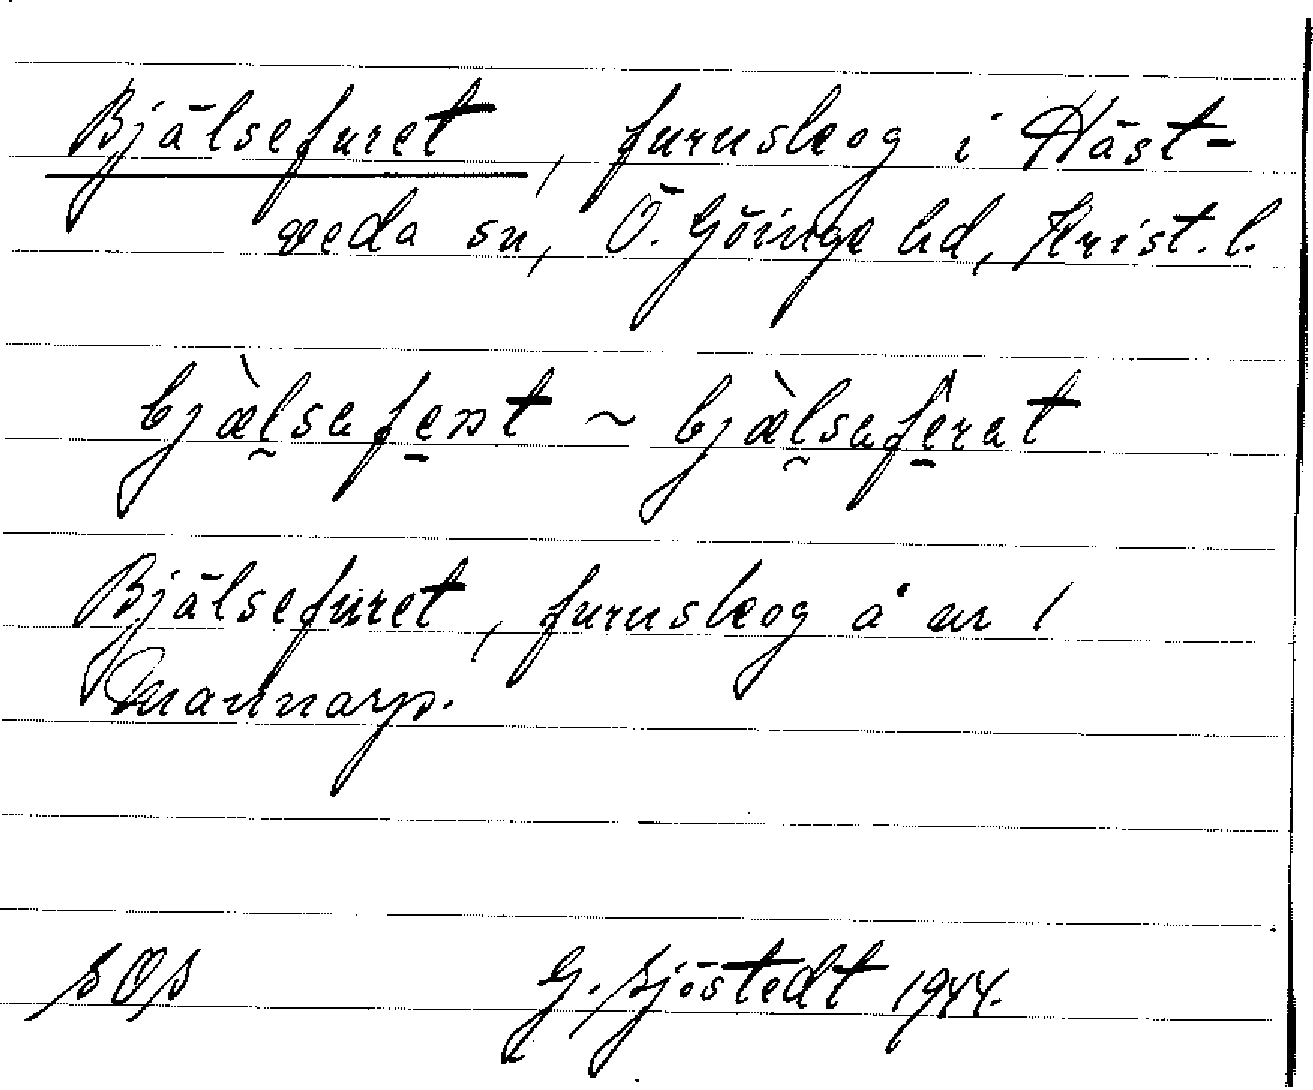 Bjälsefuret, furuskog i Häst-
veda sn, Ö. Göinge hd, Krist. l.
bjæ̀lsafent ~ bjæ̀lsaferat
Bjälsefuret, furuskog å nr 1
Mannarp.
SOS G. Sjöstedt 1944.